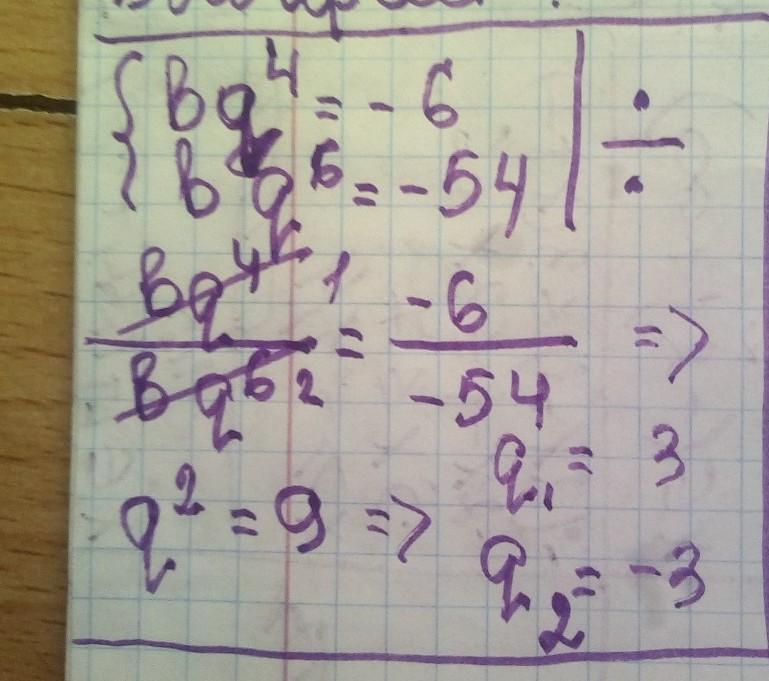 { Bq⁴ = - 6 | ÷
{ Bq⁶ = - 54 |
Bq⁴ 1 / Bq⁶ 2 = -6 / -54 =>
q² = 9 => q₁ = 3
q₂ = -3